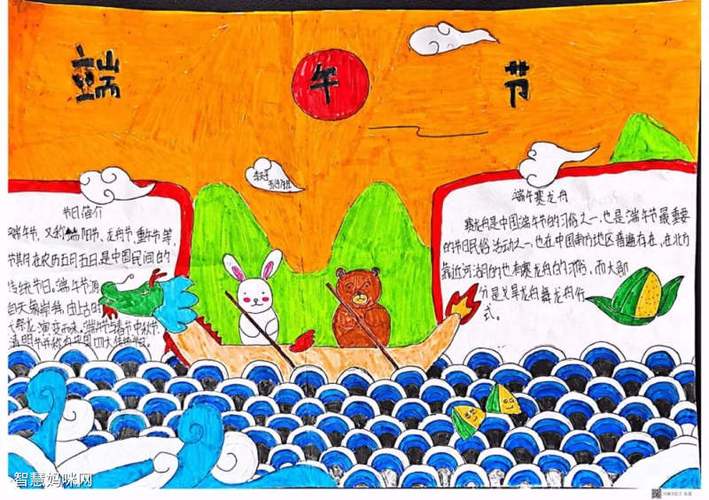 端午节
节日简介
端午节，又称端阳节、龙舟节、重午节等，
节期在农历五月五日，是中国民间的
传统节日。端午节源
自天象崇拜，由上古时
祭龙演变而来。端午节与春节、中秋节
清明节并称为中国四大传统节日。
端午赛龙舟
赛龙舟是中国端午节的习俗之一，也是端午节最重要
的节日民俗活动之一，也在中国南方地区普遍存在，在北方
靠近河湖的也有赛龙舟的习俗，而大部
分是划旱龙舟舞龙舟行
式。
智慧妈咪网